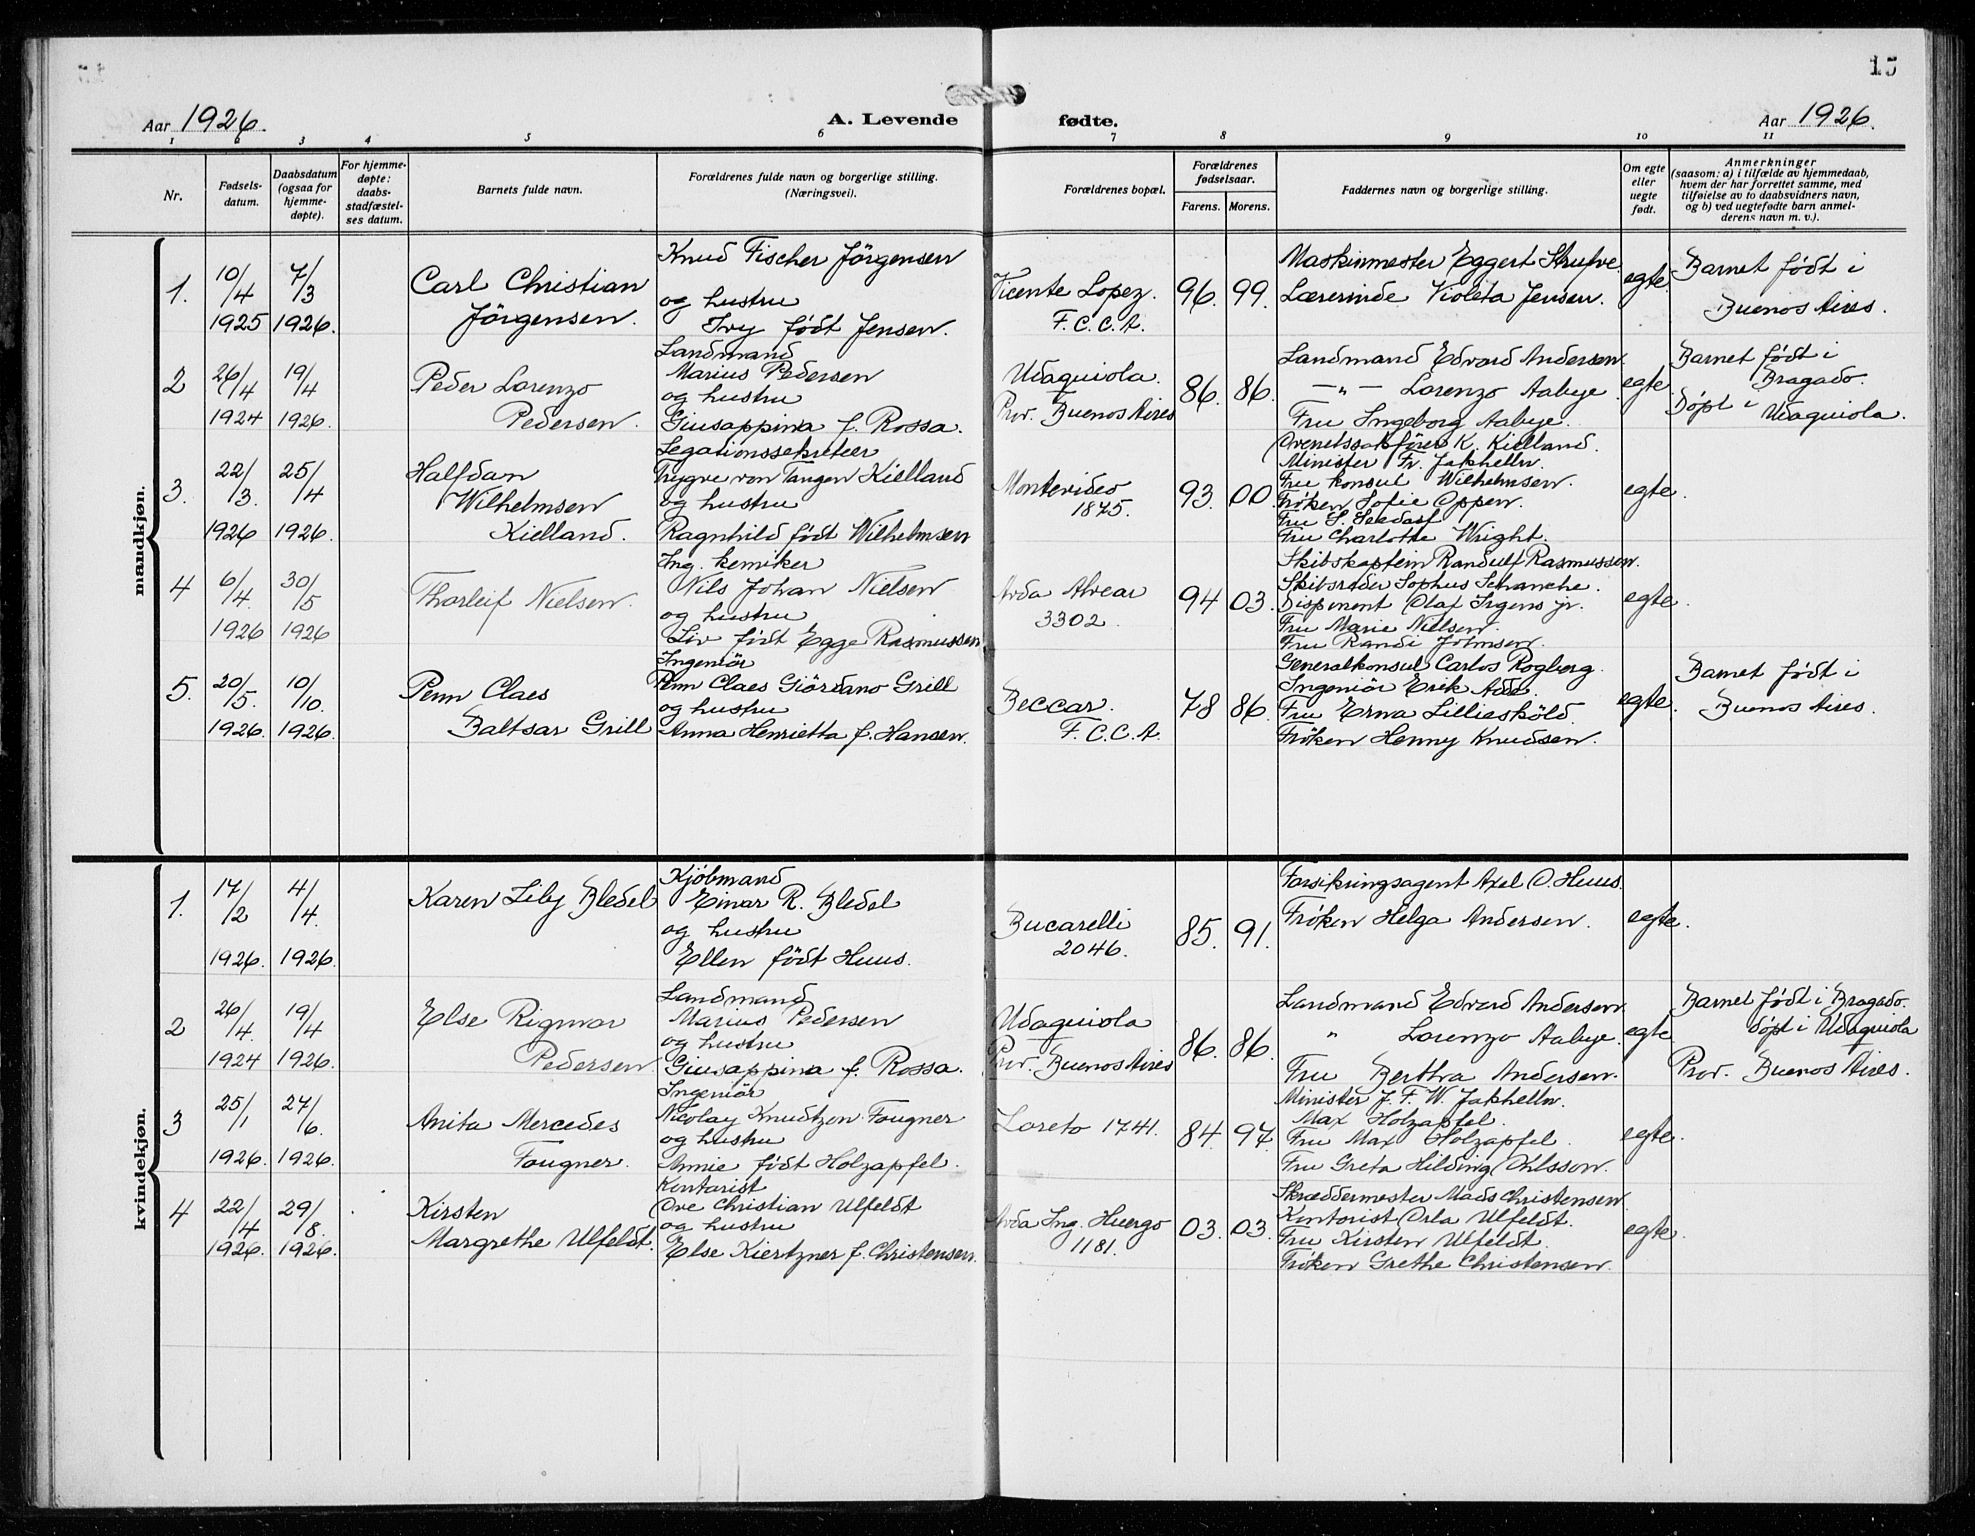 15
Aar 1926.
A. Levende fødte.
Aar 1926.
1 2 3 4 5 6 7 8 9 10 11
Nr.
Fødsels-
datum.
Daabsdatum
(ogsaa for
hjemme-
døpte).
For hjemme-
døpte:
daabs-
stadfæstel-
ses datum.
Barnets fulde navn.
Forældrenes fulde navn og borgerlige stilling.
(Næringsvei).
Forældrenes bopæl.
Forældrenes
fødselsaar.
Farens. Morens.
Faddernes navn og borgerlige stilling.
Om egte
eller
uegte
født.
Anmerkninger
(saasom: a) i tilfælde av hjemmedaab,
hvem der har forrettet samme, med
tilføielse av to daabsvidners navn,
og b) ved uegtefødte barn anmel-
derens navn m. v.).
mandkjøn.
1.
10/4
1925
7/3
1926.
Carl Christian
Jörgensen.
Knud Fischer Jörgensen
og hustru
Ivy födt Jensen.
Vicente Lopez.
F. C. C. A.
96. 99.
Maskinmester Eggert Strufve.
Lærerinde Violeta Jensen.
egte.
Barnet födt i
Buenos Aires.
2
26/4
1924
19/4
1926.
Peder Lorenzo
Pedersen.
Landmand
Marius Pedersen
og hustru
Giusappina f. Rossa.
Udaquiola.
Prov. Buenos Aires
86. 86.
Landmand Edvard Andersen.
—„— Lorenzo Aabye.
Fru Ingeborg Aabye.
egte.
Barnet födt i
Bragado.
Döpt i Udaquiola.
3.
22/3.
1926
25/4
1926.
Halfdan
Wilhelmsen
Kielland.
Legationssekretær
Trygve von Tangen Kielland
og hustru
Ragnhild födt Wilhelmsen
Montevideo
1875.
93. 00.
Ovrretssakförer K. Kielland.
Minister Fr. Jakhelln.
Fru konsul Wilhelmsen.
Fröken Sofie Oppen.
Fru S. Seedorf
Fru Charlotte Wright.
egte.
4
6/4.
1926
30/5
1926
Thorleif Nielsen.
Ing. kemiker
Nils Johan Nielsen
og hustru
Liv födt Egge Rasmussen
Avda Alvear
3302.
94 03.
Skibskaptein Randulf Rasmussen.
Skibsreder Sophus Schanche.
Disponent Olaf Irgens jr.
Fru Marie Nielsen.
Fru Randi Johnsen.
egte.
5.
20/5.
1926.
10/10.
1926.
Penn Claes
Baltsar Grill
Ingeniör
Penn Claes Giördano Grill
og hustru
Anna Henrietta f. Hansen.
Beccar.
F. C. C. A.
78 86.
Generalkonsul Carlos Rogberg.
Ingeniör Erik Ade.
Fru Erna Lilliesköld.
Fröken Henny Knudsen.
egte.
Barnet födt i
Buenos Aires.
kvindekjøn.
1.
17/2
1926.
4/4.
1926.
Karen Lily Bledel
Kjöbmand
Einar R. Bledel
og hustru
Ellen födt Huus.
Bucarelli
2046.
85. 91.
Forsikringsagent Axel O. Huus.
Fröken Helga Andersen.
egte.
2
26/4.
1924
19/4
1926.
Else Rigmor
Pedersen
Landmand
Marius Pedersen
og hustru
Giusappina f. Rossa.
Udaquiola
Prov. Buenos Aires
86. 86.
Landmand Edvard Andersen
„ Lorenzo Aabye.
Fru Bertha Andersen.
egte.
Barnet födt i Bragado.
döpt i Udaquiola
Prov. Buenos Aires.
3
25/1
1926.
27/6.
1926.
Anita Mercedes
Fougner.
Ingeniör
Nicolay Knudtzon Fougner
og hustru
Annie födt Holzapfel.
Loreto 1741.
84. 97.
Minister J. F. W. Jakhelln.
Max Holzapfel.
Fru Max Holzapfel.
Fru Greta Hilding Ohlsson.
egte.
4
22/4
1926.
29/8.
1926.
Kirsten
Margrethe Ulfeldt.
Kontorist
Ove Christian Ulfeldt
og hustru
Else Kiertzner f. Christensen.
Avda Ing. Huergo
1181.
03. 03.
Skræddermester Mads Christensen.
Kontorist Orla Ulfeldt.
Fru Kirsten Ulfeldt.
Fröken Grethe Christensen.
egte.